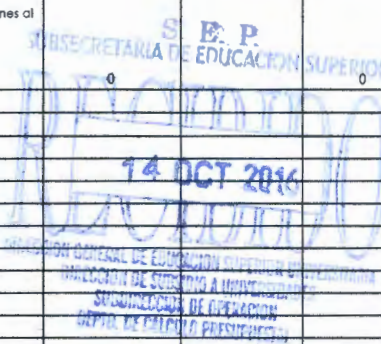 nes al
S. E. P.
SUBSECRETARIA DE EDUCACION SUPERIOR
0 0
RECIBIDO
14 OCT 2016
DIRECCION GENERAL DE EDUCACION SUPERIOR UNIVERSITARIA
DIRECCION DE SUBSIDIO A UNIVERSIDADES
SUBDIRECCION DE OPERACION
DEPTO. DE CALCULO PRESUPUESTAL